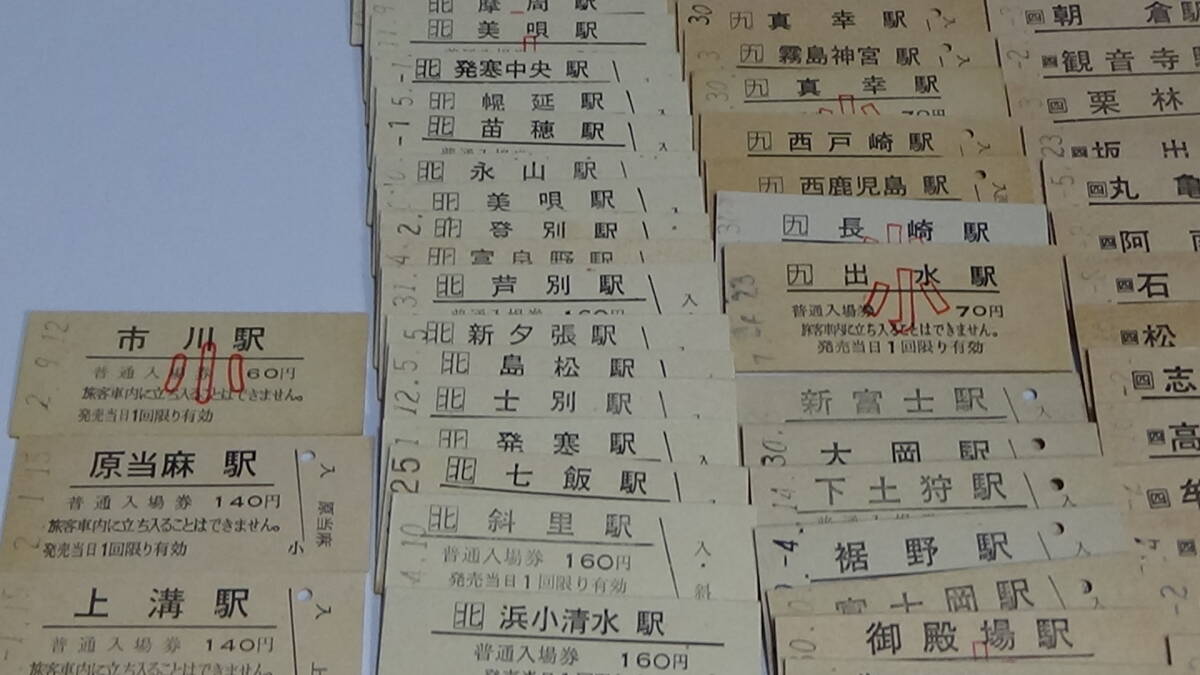 市川駅
普通入場券 60円
旅客車内に立ち入ることはできません。
発売当日1回限り有効
2.9.12
原当麻駅
普通入場券 140円
旅客車内に立ち入ることはできません。
発売当日1回限り有効
小
入
原当麻
上溝駅
普通入場券 140円
旅客車内に立ち入ることはできません。
入
上
北 摩周駅
北 美唄駅
北 発寒中央駅
北 幌延駅
北 苗穂駅
北 永山駅
北 美唄駅
北 登別駅
北 富良野駅
北 芦別駅
入
北 新夕張駅
北 島松駅
北 士別駅
北 発寒駅
北 七飯駅
北 斜里駅
普通入場券 160円
発売当日1回限り有効
入・斜
北 浜小清水駅
普通入場券 160円
九 真幸駅
九 霧島神宮駅
九 真幸駅
九 西戸崎駅
九 西鹿児島駅
九 長崎駅
九 出水駅
小
普通入場券 70円
旅客車内に立ち入ることはできません。
発売当日1回限り有効
新富士駅
大岡駅
下土狩駅
裾野駅
富士岡駅
御殿場駅
四 朝倉駅
四 観音寺駅
四 栗林
四 坂出
四 丸亀
四 阿
四 石
四 松
四 志
四 高
四 牟